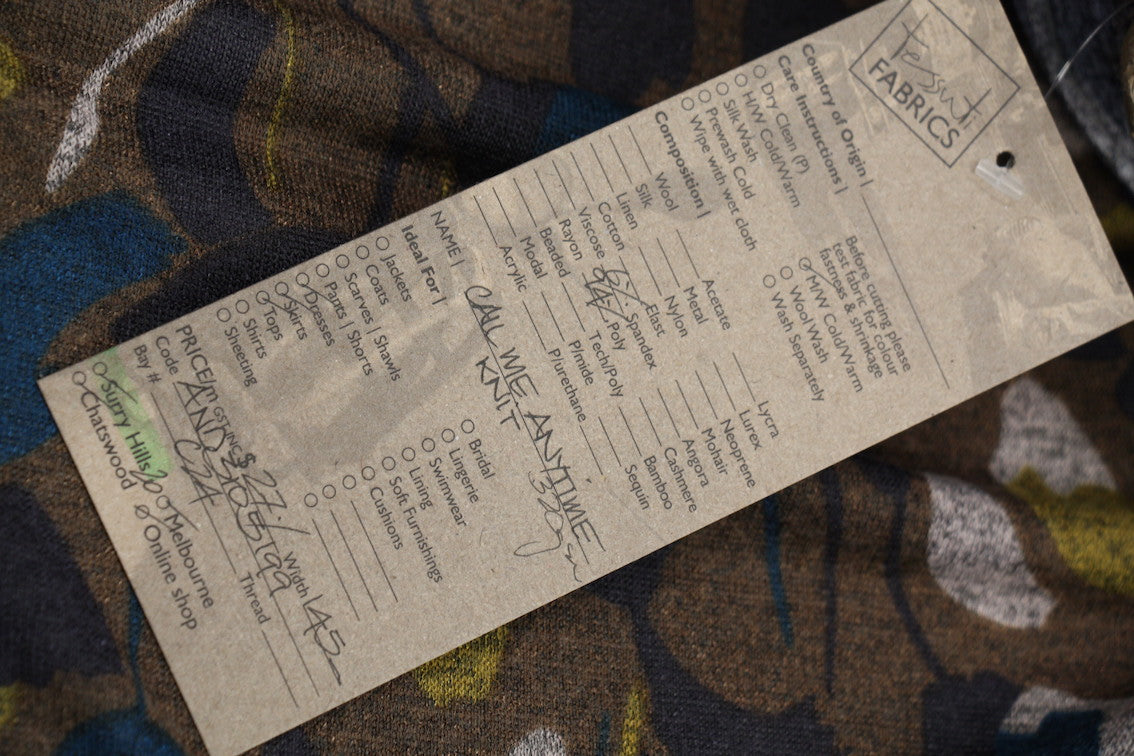 tessuti
FABRICS
Country of Origin |
Care Instructions |
Dry Clean (P)
H/W Cold/Warm
Silk Wash
Prewash Cold
Wipe with wet cloth
Before cutting please
test fabric for colour
fastness & shrinkage
M/W Cold/Warm
Wool Wash
Wash Separately
Composition |
Wool
Silk
Linen
Cotton
Viscose
Rayon
Beaded
Modal
Acrylic
Acetate
Metal
Nylon
Elast
6% Spandex
94% Poly
Tech/Poly
P/mide
P/urethane
Lycra
Lurex
Neoprene
Mohair
Angora
Cashmere
Bamboo
Sequin
NAME | CALL ME ANYTIME
KNIT 330gsm
Ideal For |
Jackets
Coats
Scarves | Shawls
Pants | Shorts
Dresses
Skirts
Tops
Shirts
Sheeting
Bridal
Lingerie
Swimwear
Lining
Soft Furnishings
Cushions
PRICE/m GST INC $ 27/ Width 145
Code
Bay # Thread
Surry Hills Melbourne
Chatswood Online shop